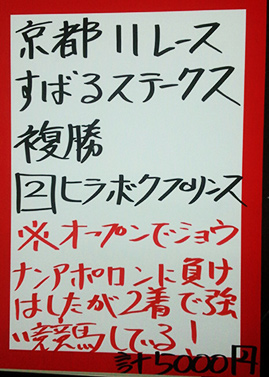 京都11レース
すばるステークス
複勝
2ヒラボクプリンス
※オープンでショウ
ナンアポロンに負け
はしたが2着で強
い競馬している!
計5000円